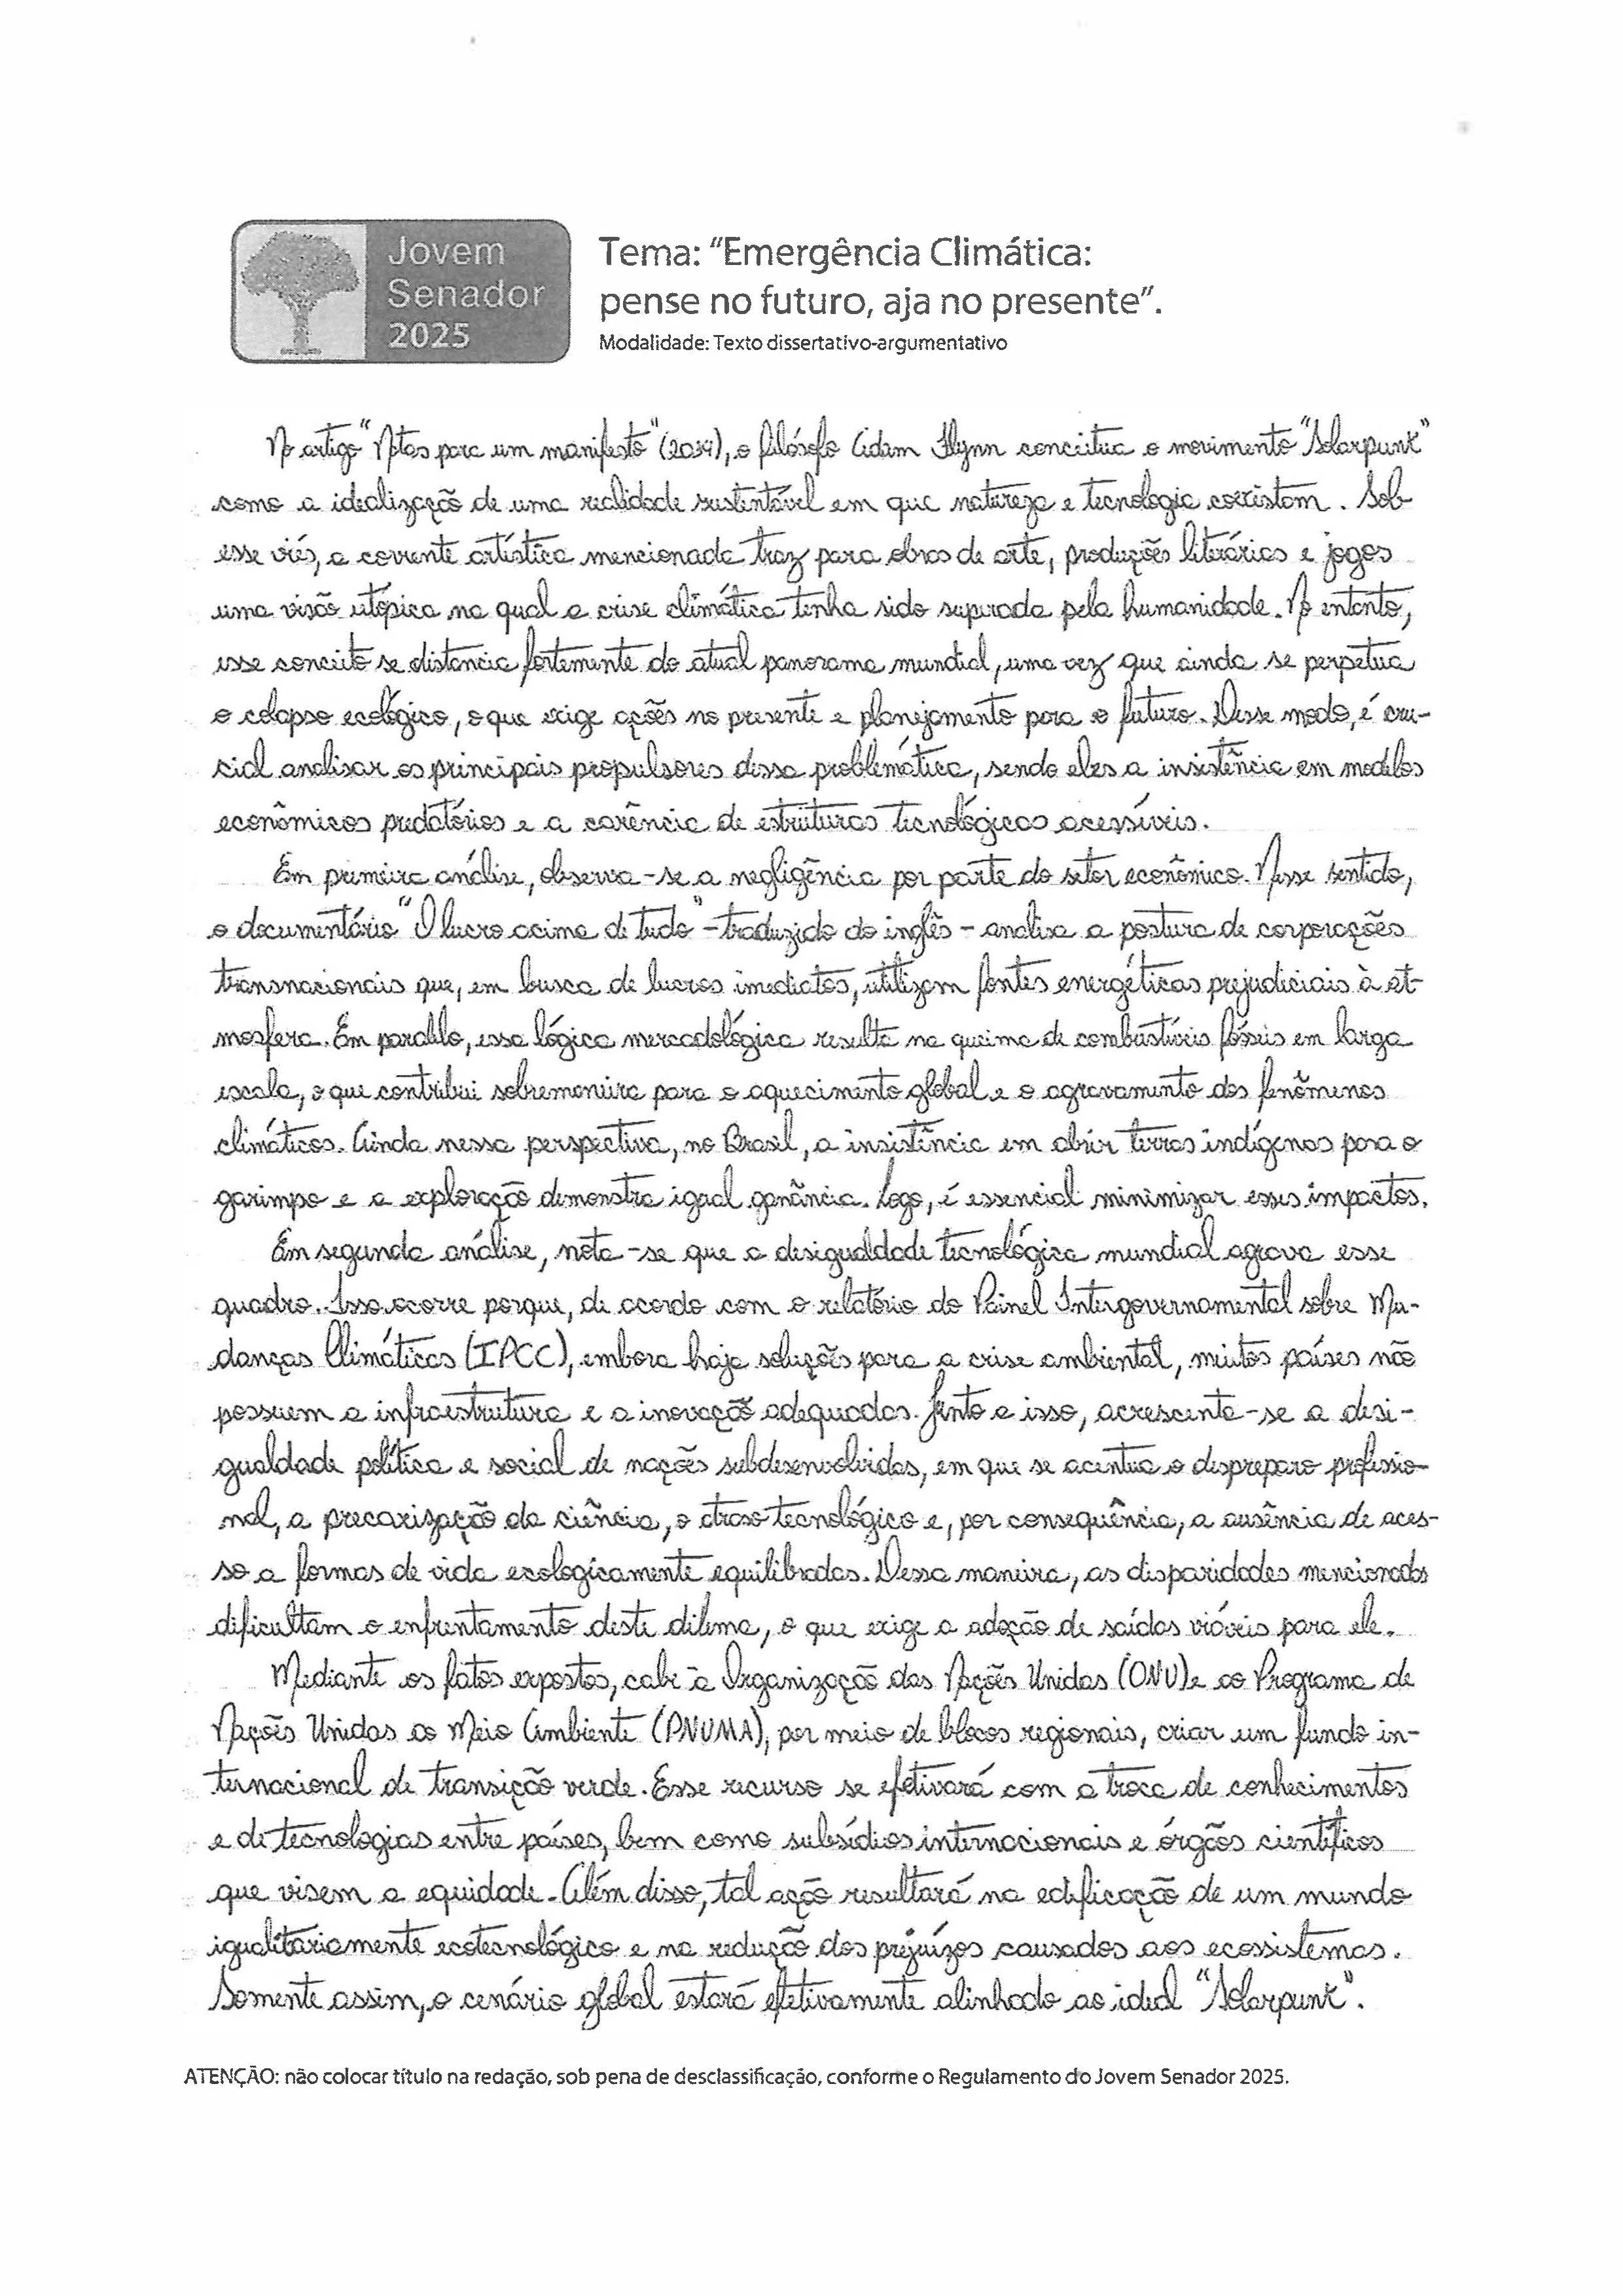 Jovem
Senador
2025
Tema: "Emergência Climática:
pense no futuro, aja no presente".
Modalidade: Texto dissertativo-argumentativo
No artigo "Notas para um manifesto" (2014), o filósofo Adam Flynn conceitua o movimento "Solarpunk"
como a idealização de uma realidade sustentável em que natureza e tecnologia coexistam. Sob
esse viés, a corrente artística mencionada traz para obras de arte, produções literárias e jogos
uma visão utópica na qual a crise climática tenha sido superada pela humanidade. No entanto,
esse conceito se distancia fortemente do atual panorama mundial, uma vez que ainda se perpetua
o colapso ecológico, o que exige ações no presente e planejamento para o futuro. Desse modo, é cru-
cial analisar os principais propulsores dessa problemática, sendo eles a insistência em modelos
econômicos predatórios e a carência de estruturas tecnológicas acessíveis.
Em primeira análise, observa-se a negligência por parte do setor econômico. Nesse sentido,
o documentário "O lucro acima de tudo" - traduzido do inglês - analisa a postura de corporações
transnacionais que, em busca de lucros imediatos, utilizam fontes energéticas prejudiciais à at-
mosfera. Em paralelo, essa lógica mercadológica resulta na queima de combustíveis fósseis em larga
escala, o que contribui sobremaneira para o aquecimento global e o agravamento dos fenômenos
climáticos. Ainda nessa perspectiva, no Brasil, a insistência em abrir terras indígenas para o
garimpo e a exploração demonstra igual ganância. Logo, é essencial minimizar esses impactos.
Em segunda análise, nota-se que a desigualdade tecnológica mundial agrava esse
quadro. Isso ocorre porque, de acordo com o relatório do Painel Intergovernamental sobre Mu-
danças Climáticas (IPCC), embora haja soluções para a crise ambiental, muitos países não
possuem a infraestrutura e a inovação adequadas. Junto a isso, acrescenta-se a desi-
gualdade política e social de nações subdesenvolvidas, em que se acentua o despreparo profissio-
nal, a precarização da ciência, o atraso tecnológico e, por consequência, a ausência de aces-
so a formas de vida ecologicamente equilibradas. Dessa maneira, as disparidades mencionadas
dificultam o enfrentamento deste dilema, o que exige a adoção de saídas viáveis para ele.
Mediante os fatos expostos, cabe à Organização das Nações Unidas (ONU) e ao Programa de
Nações Unidas ao Meio Ambiente (PNUMA), por meio de blocos regionais, criar um fundo in-
ternacional de transição verde. Esse recurso se efetivará com a troca de conhecimentos
e de tecnologias entre países, bem como subsídios internacionais e órgãos científicos
que visem a equidade. Além disso, tal ação resultará na edificação de um mundo
igualitariamente ecotecnológico e na redução dos prejuízos causados aos ecossistemas.
Somente assim, o cenário global estará efetivamente alinhado ao ideal "Solarpunk".
ATENÇÃO: não colocar título na redação, sob pena de desclassificação, conforme o Regulamento do Jovem Senador 2025.